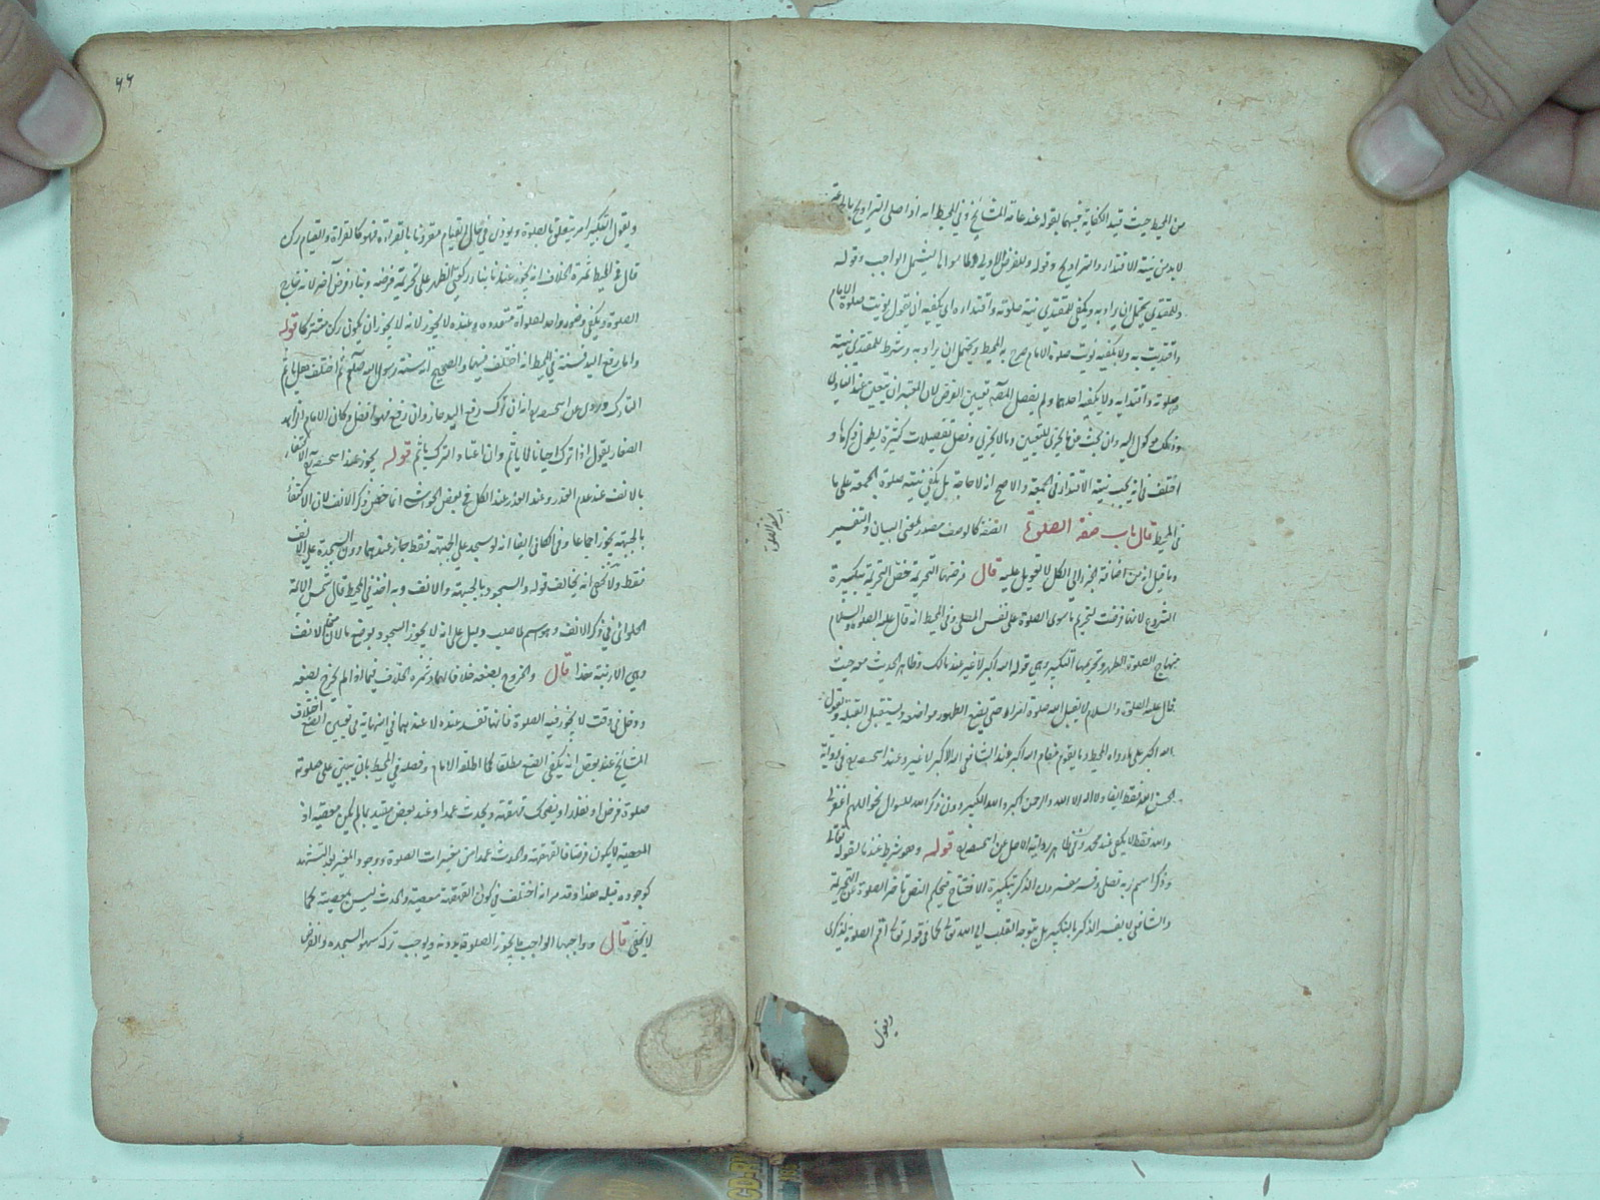 من المحيط حيث قيد الكفاية فيهما بقوله عند عامة المشايخ وفي المحيط انه اذا صلى التراويح
لا بد من نية الاقتداء والتراويح وقوله وللفرض الاولى
وللمقتدي يحتمل ان يراد به ويكفي للمقتدي نية صلوته واقتداءه اي يكفيه ان يقول نويت صلوة الامام
واقتديت به ولا يكفيه نويت صلوة الامام صرح به المحيط ويحتمل ان يراد به وشرط للمقتدي نية
صلوته واقتداءه ولا يكفيه احدهما ولم يفصل المصنف تعيين الفرض لان المعتبر ان يتعلق عند
اختلف في انه يجب نية الاقتداء في الجمعة والاصح انه لا حاجة بل يكفي نية صلوة الجمعة على ما
في المحيط قال باب صفة الصلوة الصفة كالوصف مصدر بمعنى البيان والتفسير
وما قيل انه من اضافة الجزء الى الكل لا تعويل عليه قال فرضها التحريمة خص التحريمة بتكبيرة
الشروع لانها فرضت لتحريم ما سوى الصلوة على نفس المصلي وفي المحيط انه قال عليه الصلوة والسلام
منهاج الصلوة الطهور وتحريمها التكبير وهي قوله الله اكبر لا غير عند مالك وظاهر الحديث معه حيث
قال عليه الصلوة والسلام لا يقبل الله صلوة امرء حتى يضع الطهور مواضعه ويستقبل القبلة ويقول
الله اكبر على ما رواه المحيط وما يقوم مقام الله اكبر عند الشافعي الله الاكبر لا غير وعند
والله فقط لا يكفي عند محمد وفي ظاهر رواية الاصل عن قوله وهو شرط عندنا لقوله تعالى
وذكر اسم ربه فصلى وفسر مفسرون الذكر بتكبيرة الافتتاح فبحكم النص تأخر الصلوة عن التحريمة
والشافعي لا يفسر الذكر بالتكبير بل بتوجه القلب الى الله تعالى كما في قوله تعالى اقم الصلوة لذكرى
ويقول
باب صفة الصلوة
٤٤
ويقول التكبير امر يتعلق بالصلوة ويؤدى في حال القيام مقرونا بالقراءة فهو كالقراءة والقيام ركن
قال في المحيط ثمرة الخلاف انه يجوز عندنا بناء ركعتي الظهر على تحريمة فرضه وبناء فرض آخر لانه خارج
الصلوة ويكفي وضوء واحد لصلوات متعددة وعنده لا يجوز لانه لا يجوز ان يكون ركن مشتركا قوله
واما رفع اليد فسنة في المحيط انه اختلف فيهما والصحيح انه سنة رسول الله صلعم ثم اختلف هل يأثم
التارك وروى عن انه ان ترك رفع اليد جاز وان رفع فهو افضل وكان الامام الزاهد
الصفار يقول اذا ترك احيانا لا يأثم وان اعتاد الترك يأثم قوله يجوز عند الاكتفاء
بالانف عند عدم العذر وعند العذر عند الكل في بعض الحواشي انما خص ذكر الانف لان الاكتفاء
بالجبهة يجوز اجماعا وفي الكافي ايضا انه لو سجد على الجبهة فقط جاز عندهما دون السجدة على الانف
فقط ولا يخفى انه يخالف قوله والسجود بالجبهة والانف وبه اخذ في المحيط قال شمس الائمة
الحلوائي في ذكر الانف وهو اسم لما صلب دليل على انه لا يجوز السجود بوضع ما لان من الانف
وهي الارنبة هذا قال والخروج بصنعه خلافا لهما وثمرة الخلاف فيما اذا لم يخرج بصنعه
ودخل في وقت لا يجوز فيه الصلوة فانها تفسد عنده لا عندهما في النهاية في تعيين الصنع اختلاف
المشايخ عند بعض انه يكفي الصنع مطلقا كما اطلقه الامام وفصله في المحيط بان يبني على صلوته
صلوة فرض او نفلا او يضحك قهقهة ويحدث عمدا وعند بعض مقيد بما لم يكن معصية اذ
المعصية لا يكون فرضا فالقهقهة والحدث عمدا من مغيرات الصلوة ووجود المغير بعد التشهد
كوجوده قبله هذا وقد مر انه اختلف في كون القهقهة معصية والحدث ليس بمعصية كما
لا يخفى قال وواجبها الواجب ما يجوز الصلوة بدونه ويوجب تركه سهوا السجدة والفرض